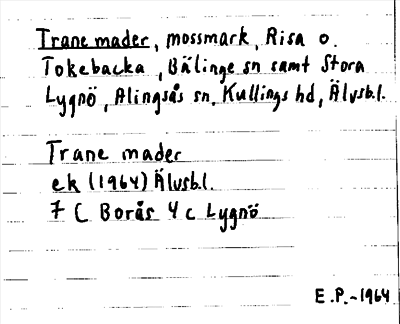 Trane mader, mossmark, Risa o.
Tokebacka, Bälinge sn samt Stora
Lygnö, Alingsås sn, Kullings hd, Älvsb.l.
Trane mader
ek (1964) Älvsb.l.
7 C Borås 4 c Lygnö
E.P.-1964